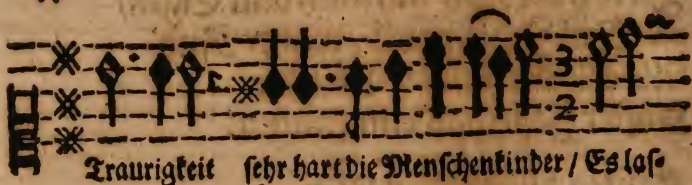 3
2
Traurigkeit sehr hart die Menschenkinder / Es las⸗